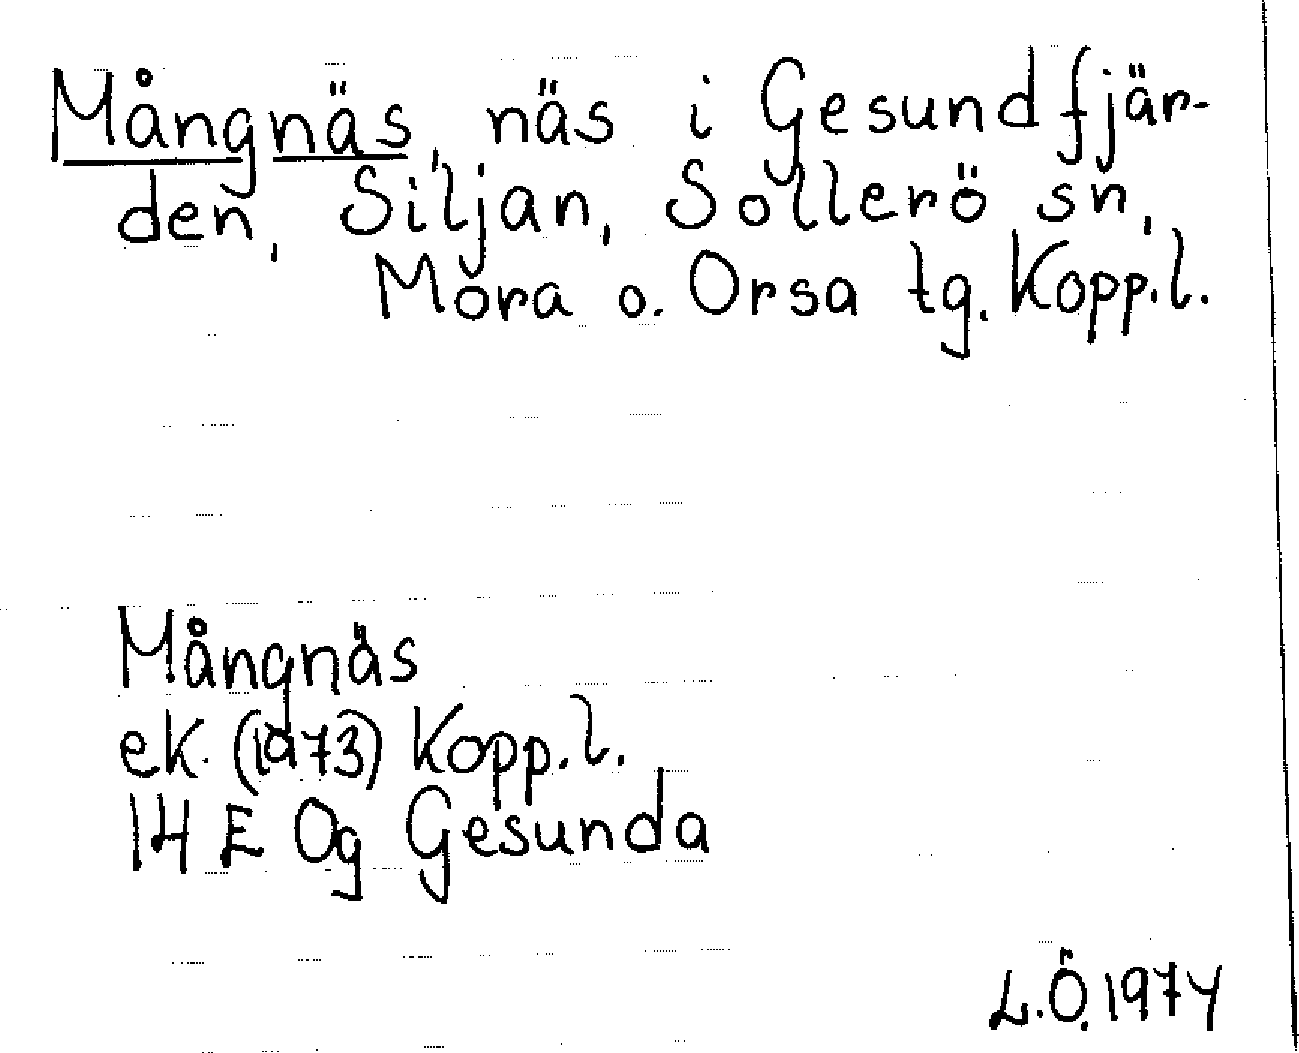 Mångnäs, näs i Gesundfjär-
den, Siljan, Sollerö sn,
Mora o. Orsa tg. Kopp.l.
Mångnäs
ek. (1973) Kopp.l.
14 E 0g Gesunda
L.Ö. 1974